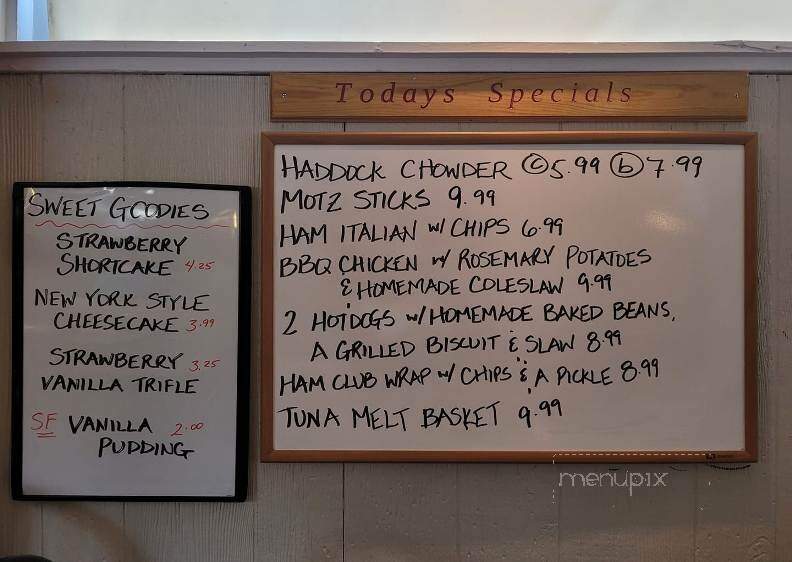 Todays Specials
HADDOCK CHOWDER ⓒ5.99 ⓑ7.99
MOTZ STICKS 9.99
HAM ITALIAN w/ CHIPS 6.99
BBQ CHICKEN w/ ROSEMARY POTATOES
& HOMEMADE COLESLAW 9.99
2 HOTDOGS w/ HOMEMADE BAKED BEANS,
A GRILLED BISCUIT & SLAW 8.99
HAM CLUB WRAP w/ CHIPS & A PICKLE 8.99
TUNA MELT BASKET 9.99
SWEET GOODIES
STRAWBERRY
SHORTCAKE 4.25
NEW YORK STYLE
CHEESECAKE 3.99
STRAWBERRY 3.25
VANILLA TRIFLE
SF VANILLA 2.00
PUDDING
menupix